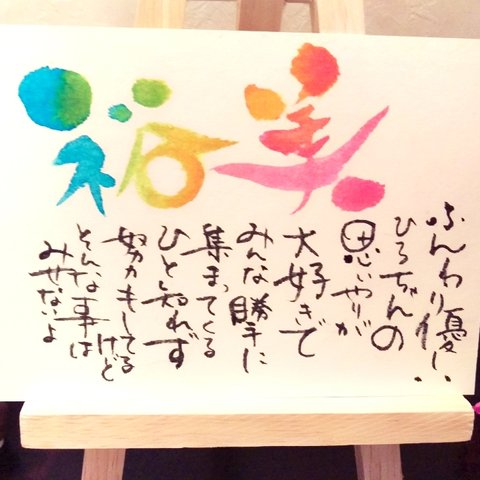 裕美
ふんわり優しい
ひろちゃんの
思いやりが
大好きで
みんな勝手に
集まってくる
ひと知れず
努力もしてるけど
そんな事は
みせないよ